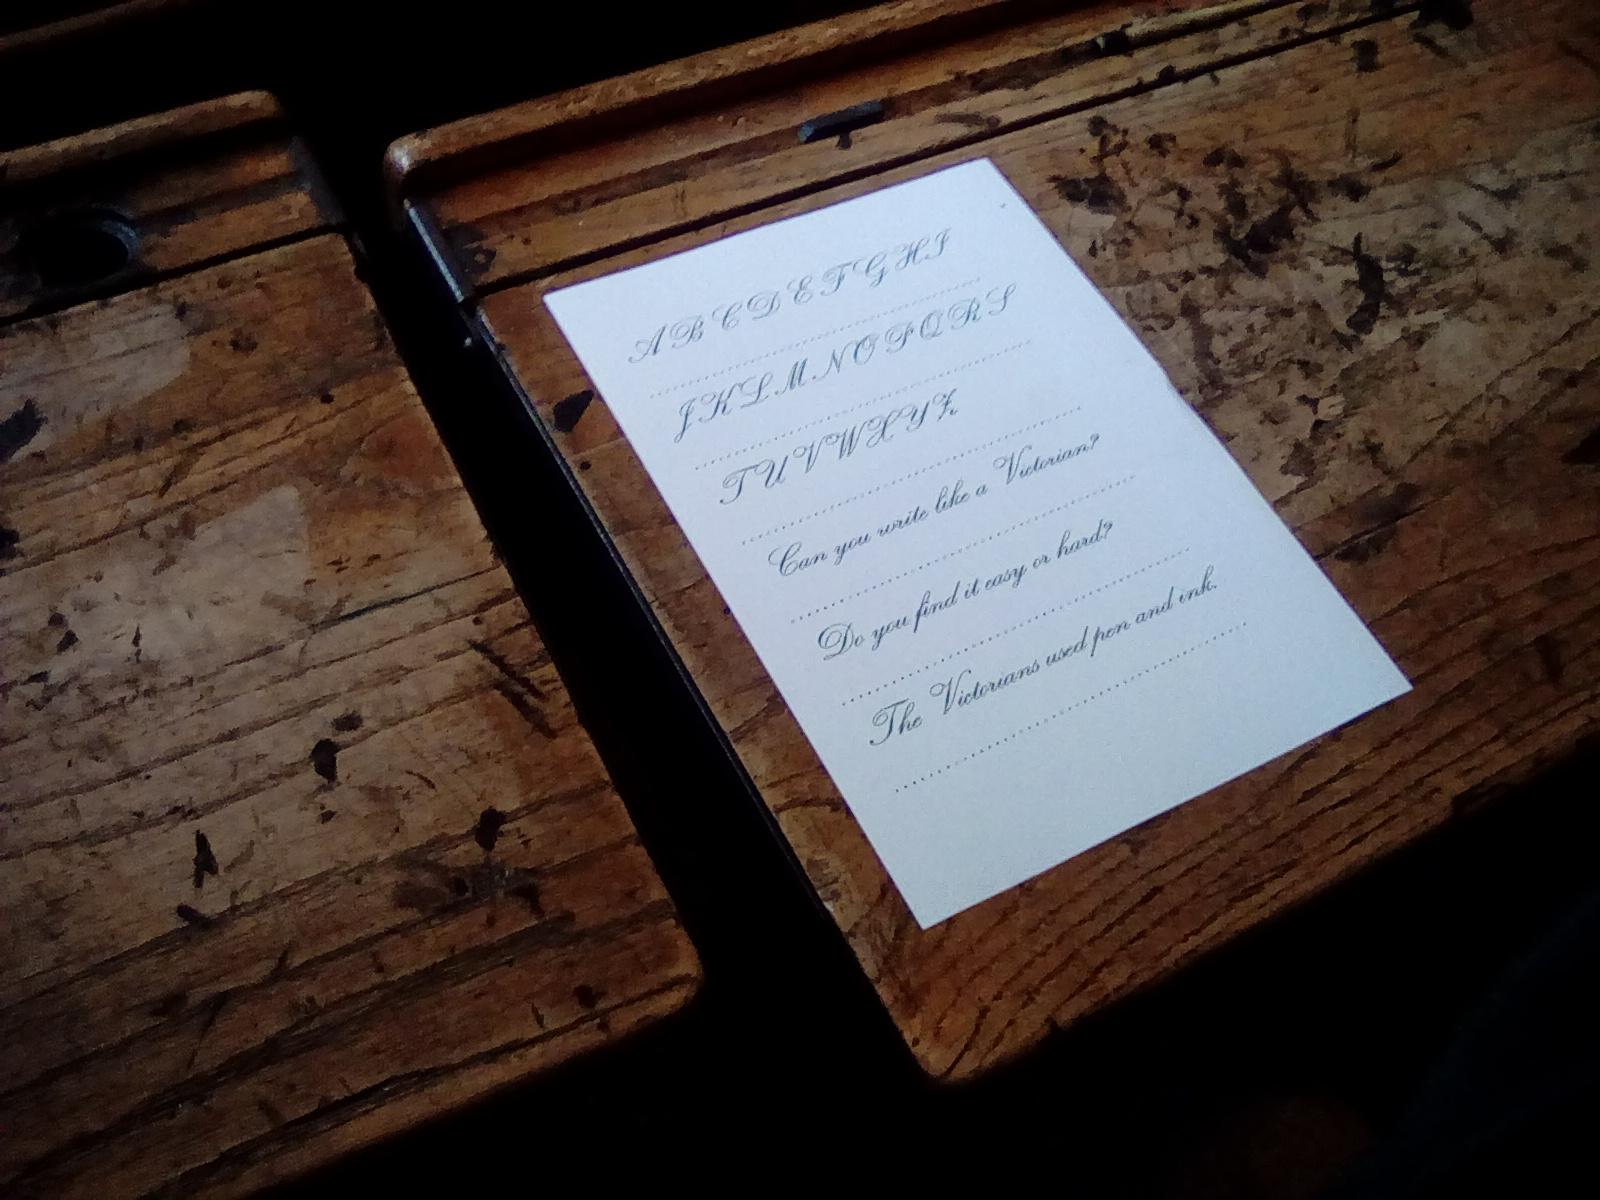 A B C D E F G H I
J K L M N O P Q R S
T U V W X Y Z
Can you write like a Victorian?
Do you find it easy or hard?
The Victorians used pen and ink.